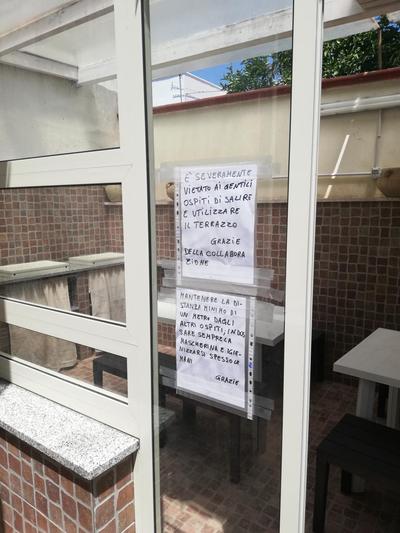 È SEVERAMENTE
VIETATO AI GENTILI
OSPITI DI SALIRE
E UTILIZZARE
IL TERRAZZO
GRAZIE
DELLA COLLABORA
ZIONE
MANTENERE LA DI-
STANZA MINIMO DI
UN METRO DAGLI
ALTRI OSPITI, INDOS
SARE SEMPRE LA
MASCHERINA E IGIE-
NIZZARSI SPESSO LE
MANI
GRAZIE